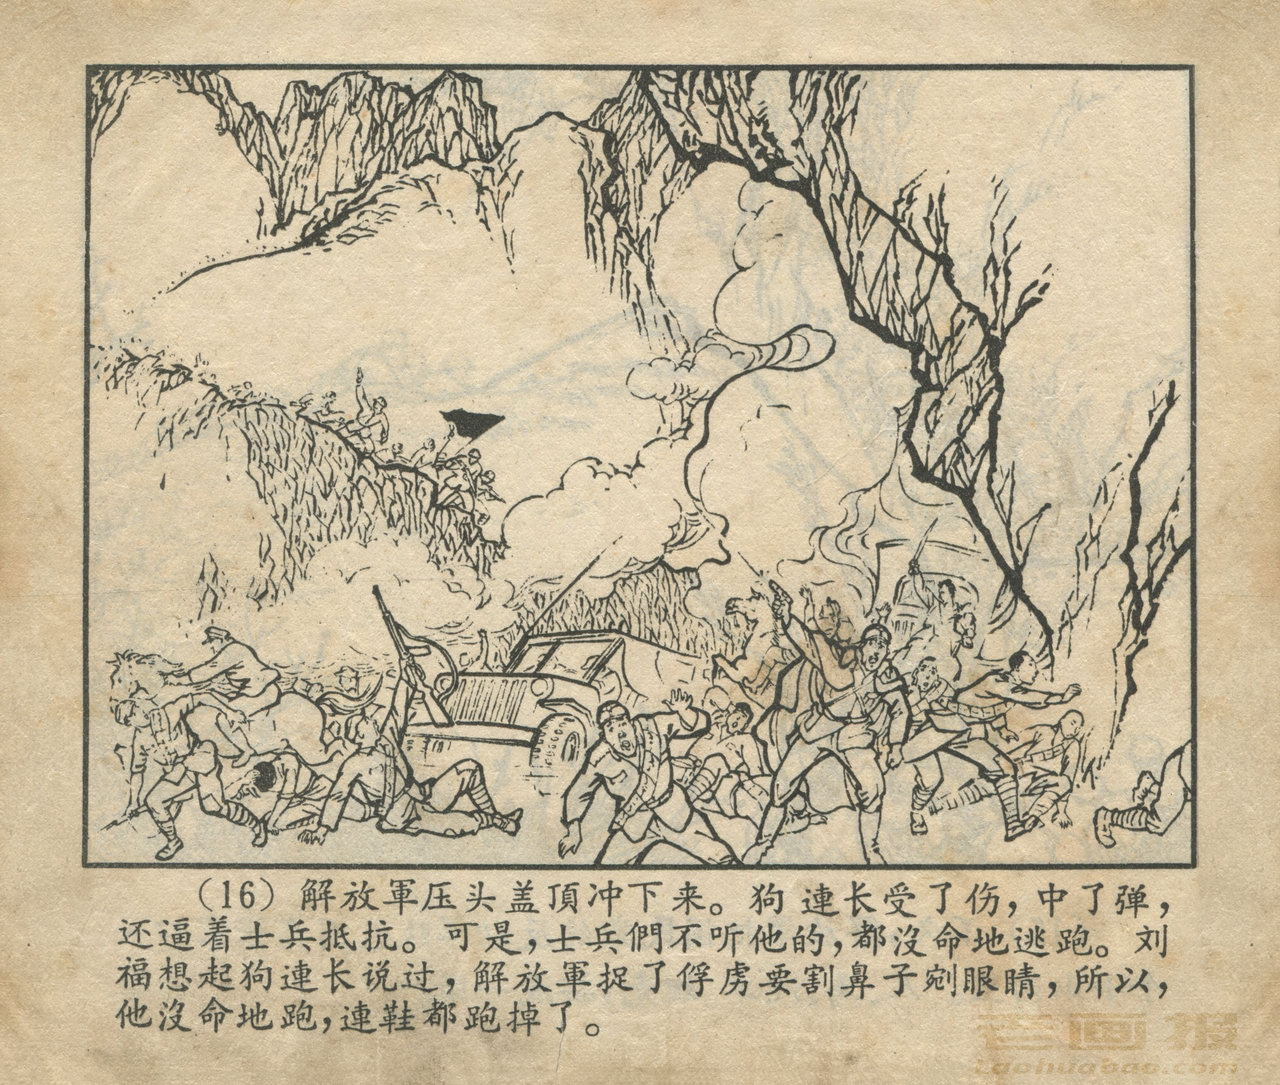 (16) 解放軍压头盖頂冲下来。狗連长受了伤，中了弹，
还逼着士兵抵抗。可是，士兵們不听他的，都沒命地逃跑。刘
福想起狗連长说过，解放軍捉了俘虏要割鼻子剜眼睛，所以，
他沒命地跑，連鞋都跑掉了。
老画报
Laohuabao.com